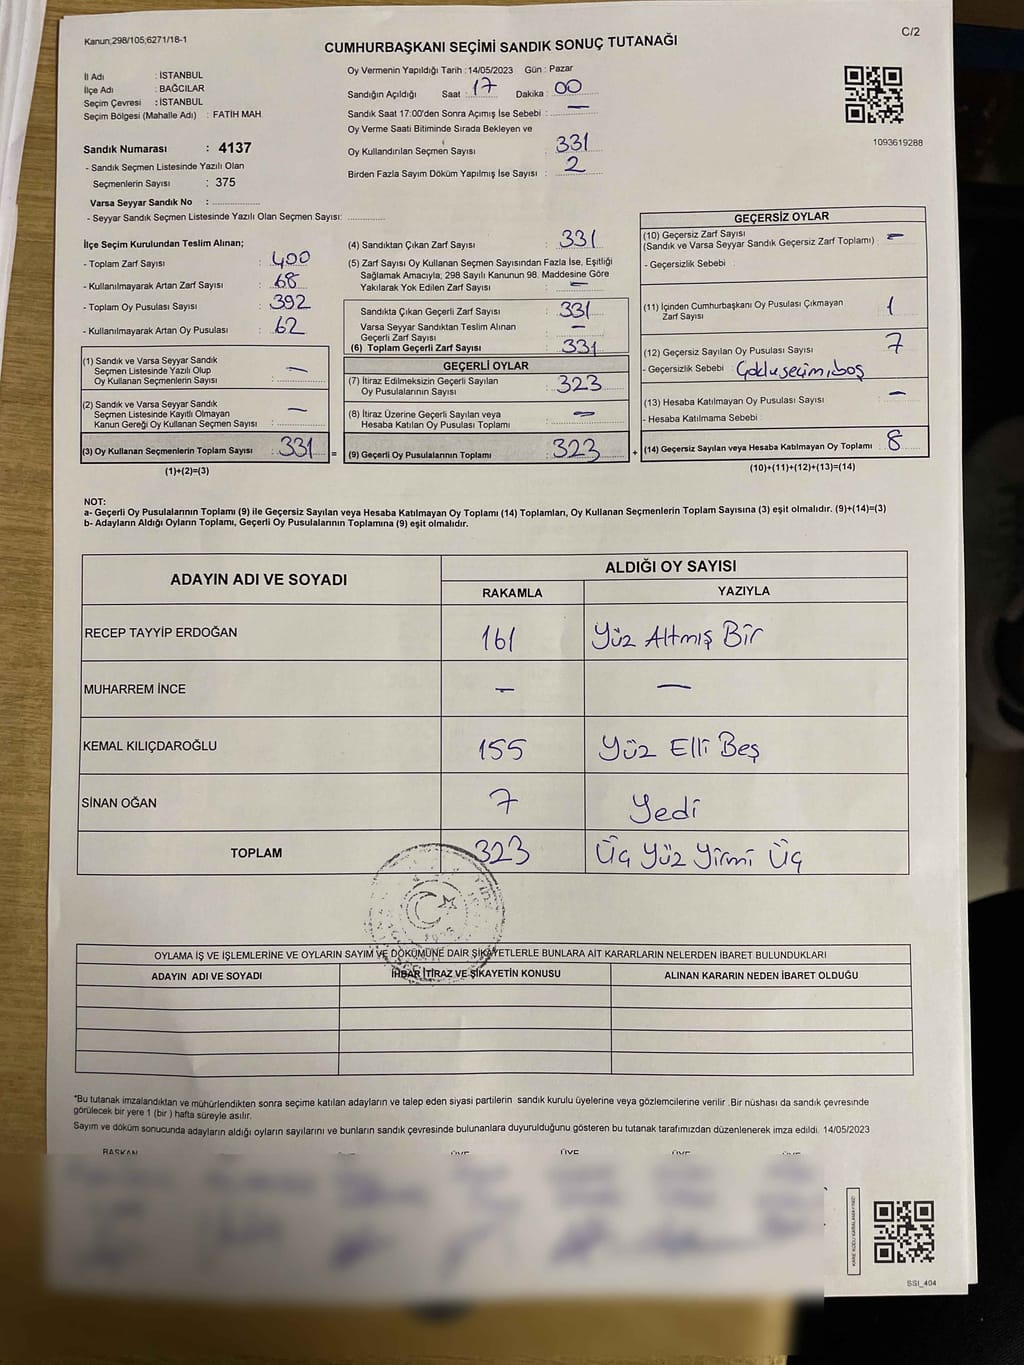 Kanun;298/105;6271/18-1
C/2
CUMHURBAŞKANI SEÇİMİ SANDIK SONUÇ TUTANAĞI
İl Adı : İSTANBUL
İlçe Adı : BAĞCILAR
Seçim Çevresi : İSTANBUL
Seçim Bölgesi (Mahalle Adı) : FATİH MAH.
Sandık Numarası : 4137
- Sandık Seçmen Listesinde Yazılı Olan
Seçmenlerin Sayısı : 375
Varsa Seyyar Sandık No :
- Seyyar Sandık Seçmen Listesinde Yazılı Olan Seçmen Sayısı:
Oy Vermenin Yapıldığı Tarih : 14/05/2023 Gün : Pazar
Sandığın Açıldığı Saat : 17 Dakika : 00
Sandık Saat 17:00'den Sonra Açımış İse Sebebi : —
Oy Verme Saati Bitiminde Sırada Bekleyen ve
Oy Kullandırılan Seçmen Sayısı : 331
Birden Fazla Sayım Döküm Yapılmış İse Sayısı : 2
1093619288
İlçe Seçim Kurulundan Teslim Alınan;
- Toplam Zarf Sayısı : 400
- Kullanılmayarak Artan Zarf Sayısı : 68
- Toplam Oy Pusulası Sayısı : 392
- Kullanılmayarak Artan Oy Pusulası : 62
(1) Sandık ve Varsa Seyyar Sandık
Seçmen Listesinde Yazılı Olup
Oy Kullanan Seçmenlerin Sayısı : —
(2) Sandık ve Varsa Seyyar Sandık
Seçmen Listesinde Kayıtlı Olmayan
Kanun Gereği Oy Kullanan Seçmen Sayısı : —
(3) Oy Kullanan Seçmenlerin Toplam Sayısı : 331 =
(1)+(2)=(3)
(4) Sandıktan Çıkan Zarf Sayısı : 331
(5) Zarf Sayısı Oy Kullanan Seçmen Sayısından Fazla İse, Eşitliği
Sağlamak Amacıyla; 298 Sayılı Kanunun 98. Maddesine Göre
Yakılarak Yok Edilen Zarf Sayısı : —
Sandıkta Çıkan Geçerli Zarf Sayısı : 331
Varsa Seyyar Sandıktan Teslim Alınan
Geçerli Zarf Sayısı : —
(6) Toplam Geçerli Zarf Sayısı : 331
GEÇERLİ OYLAR
(7) İtiraz Edilmeksizin Geçerli Sayılan
Oy Pusulalarının Sayısı : 323
(8) İtiraz Üzerine Geçerli Sayılan veya
Hesaba Katılan Oy Pusulası Toplamı : —
(9) Geçerli Oy Pusulalarının Toplamı : 323 +
GEÇERSİZ OYLAR
(10) Geçersiz Zarf Sayısı
(Sandık ve Varsa Seyyar Sandık Geçersiz Zarf Toplamı) : —
- Geçersizlik Sebebi :
(11) İçinden Cumhurbaşkanı Oy Pusulası Çıkmayan
Zarf Sayısı : 1
(12) Geçersiz Sayılan Oy Pusulası Sayısı : 7
- Geçersizlik Sebebi : Çoklu seçim, boş
(13) Hesaba Katılmayan Oy Pusulası Sayısı : —
- Hesaba Katılmama Sebebi :
(14) Geçersiz Sayılan veya Hesaba Katılmayan Oy Toplamı : 8
(10)+(11)+(12)+(13)=(14)
NOT:
a- Geçerli Oy Pusulalarının Toplamı (9) ile Geçersiz Sayılan veya Hesaba Katılmayan Oy Toplamı (14) Toplamları, Oy Kullanan Seçmenlerin Toplam Sayısına (3) eşit olmalıdır. (9)+(14)=(3)
b- Adayların Aldığı Oyların Toplamı, Geçerli Oy Pusulalarının Toplamına (9) eşit olmalıdır.
ADAYIN ADI VE SOYADI ALDIĞI OY SAYISI
RAKAMLA YAZIYLA
RECEP TAYYİP ERDOĞAN 161 Yüz Altmış Bir
MUHARREM İNCE — —
KEMAL KILIÇDAROĞLU 155 Yüz Elli Beş
SİNAN OĞAN 7 Yedi
TOPLAM 323 Üç Yüz Yirmi Üç
OYLAMA İŞ VE İŞLEMLERİNE VE OYLARIN SAYIM VE DÖKÜMÜNE DAİR ŞİKAYETLERLE BUNLARA AİT KARARLARIN NELERDEN İBARET BULUNDUKLARI
ADAYIN ADI VE SOYADI İHBAR İTİRAZ VE ŞİKAYETİN KONUSU ALINAN KARARIN NEDEN İBARET OLDUĞU
*Bu tutanak imzalandıktan ve mühürlendikten sonra seçime katılan adayların ve talep eden siyasi partilerin sandık kurulu üyelerine veya gözlemcilerine verilir .Bir nüshası da sandık çevresinde
görülecek bir yere 1 (bir ) hafta süreyle asılır.
Sayım ve döküm sonucunda adayların aldığı oyların sayılarını ve bunların sandık çevresinde bulunanlara duyurulduğunu gösteren bu tutanak tarafımızdan düzenlenerek imza edildi. 14/05/2023
BAŞKAN ÜYE ÜYE ÜYE ÜYE ÜYE
SSI_404